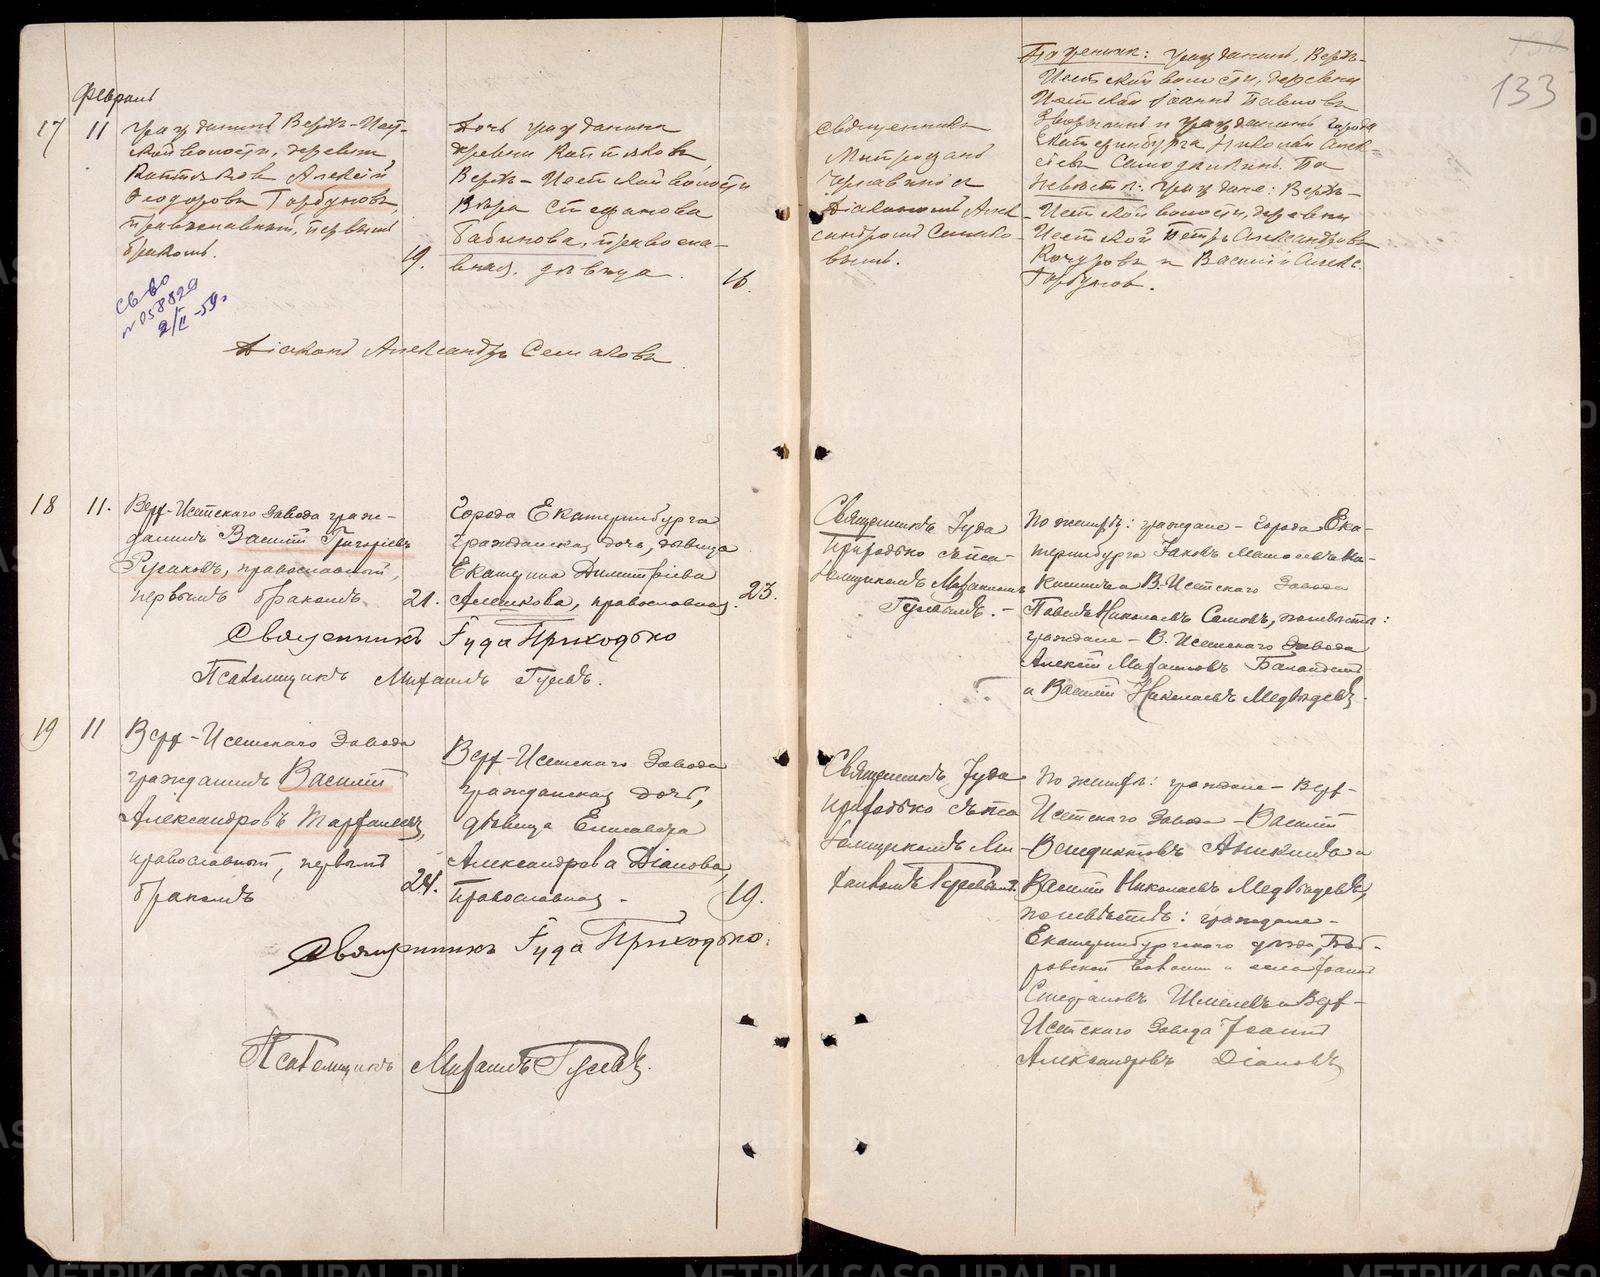 133
Февраль
17
11
гражданинъ Верхъ-Исет-
ской волости, деревни
Алексѣй
Ѳеодоровъ Горбуновъ,
православный, первымъ
бракомъ.
19.
Дочь гражданина
деревни
Верхъ-Исетской волости
Вѣра Стефанова
Бабинова, правосла-
вная, дѣвица.
16.
Священникъ
Діакономъ Алек-
сандромъ Симако-
вымъ.
По женихѣ: гражданинъ, Верхъ-
Исетской волости, деревни
Исетской Іоаннъ Павловъ
и гражданинъ города
Екатеринбурга Николай Алек-
По
невѣстѣ: граждане: Верхъ-
Исетской волости, деревни
Исетской Петръ Александровъ
Кочуровъ и Василій Алекс.
Горбунов.
Св-во
2/II-59г
Діаконъ Александръ Симаковъ
18
11.
Верх-Исетскаго Завода граж-
данинъ Василій Григоріевъ
Русаковъ, православный,
первымъ бракомъ
21.
Города Екатеринбурга
гражданская дочь, дѣвица
Екатерина Димитріева
православная.
23.
Священникъ Іуда
Приходько съ пса-
ломщикомъ Михаиломъ
Гусевымъ. -
По женихѣ: граждане - города Ека-
теринбурга Іаковъ
и В. Исетскаго Завода
Павелъ Николаевъ
граждане - В. Исетскаго Завода
Алексѣй
и Василій Николаевъ Медвѣдевъ.
Священникъ Іуда Приходько
Псаломщикъ Михаилъ Гусевъ.
19
11
Верх-Исетскаго Завода
гражданинъ Василій
Александровъ
православный, первымъ
бракомъ
24.
Верх-Исетскаго Завода
гражданская дочь,
дѣвица Елисавета
Александрова Діанова,
православная -
19.
Священникъ Іуда
Приходько съ пса-
ломщикомъ Ми-
хаиломъ Гусевымъ.
По женихѣ: граждане - Верх-
Исетскаго Завода - Василій
Венедиктовъ Аникинъ и
Василій Николаевъ Медвѣдевъ,
по невѣстѣ: граждане -
Екатеринбургскаго уѣзда,
Стефановъ Шмелевъ и Верх-
Исетскаго Завода Іоаннъ
Александровъ Діановъ
Священникъ Іуда Приходько.
Псаломщикъ Михаилъ Гусевъ.
METRIKI.GASO-URAL.RU